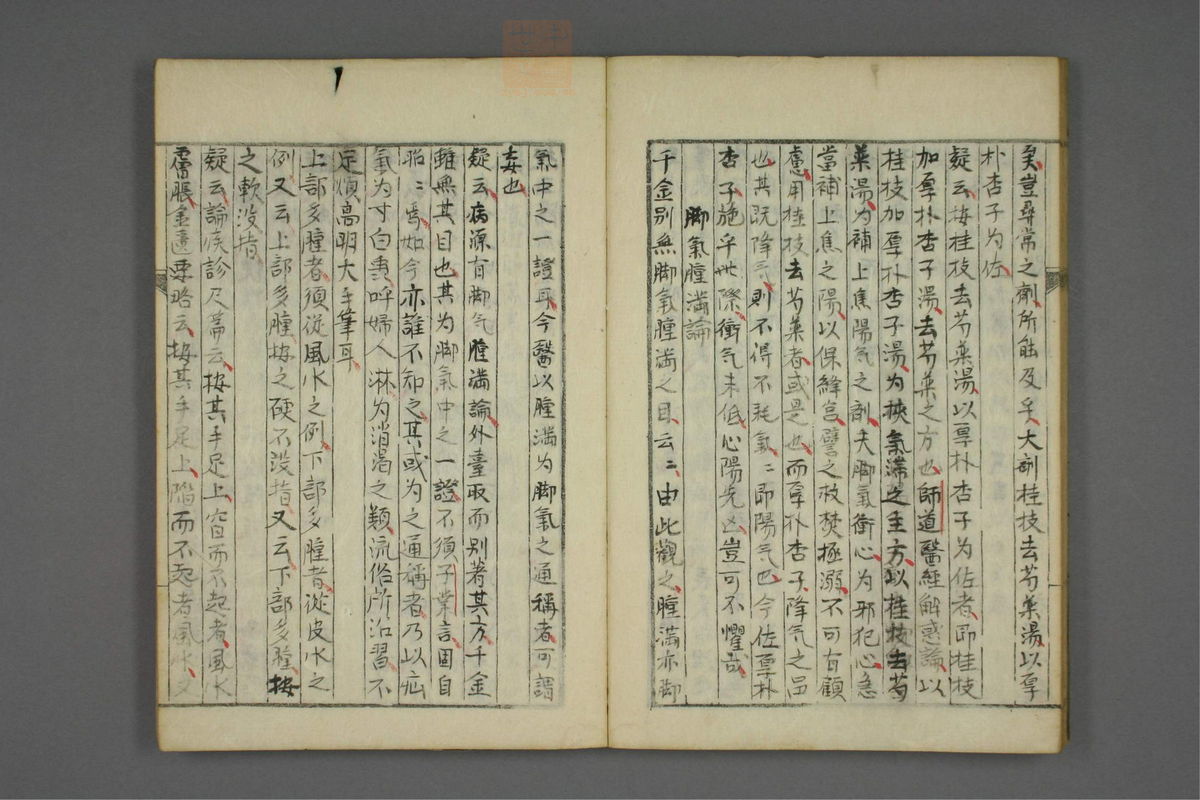 矣豈尋常之劑所能及乎大劑桂枝去芍藥湯以厚
朴杏子為佐
疑云按桂枝去芍藥湯以厚朴杏子為佐者即桂枝
加厚朴杏子湯去芍藥之方也師道醫經解惑論以
桂枝加厚朴杏子湯為挾氣滯之主方以桂枝去芍
藥湯為補上焦陽气之劑夫脚氣衝心為邪犯心急
當補上焦之陽以保絳宮譬之救焚極溺不可有顧
慮用桂枝去芍藥者或是也而厚朴杏子降气之品
也其既降气則不得不耗氣〻即陽气也今佐厚朴
杏子施乎此際衝气未低心陽先凶豈可不懼哉
脚氣腫滿論
千金別無脚氣腫滿之目云〻由此觀之腫滿亦脚
氣中之一證耳今醫以腫滿為脚氣之通稱者可謂
妄也
疑云病源有脚气腫滿論外臺取而別著其方千金
雖無其目也其為脚氣中之一證不須子業言固自
昭〻焉如今亦誰不知之其或為之通稱者乃以疝
氣為寸白書呼婦人淋為消渴之類流俗所沿習不
足煩高明大手筆耳
上部多腫者須從風水之例下部多腫者從皮水之
例又云上部多腫按之硬不没指又云下部多腫按
之軟没指
疑云論疾診尺篇云按其手足上窅而不起者風水
膚脹金匱要略云按其手足上陷而不起者風水又